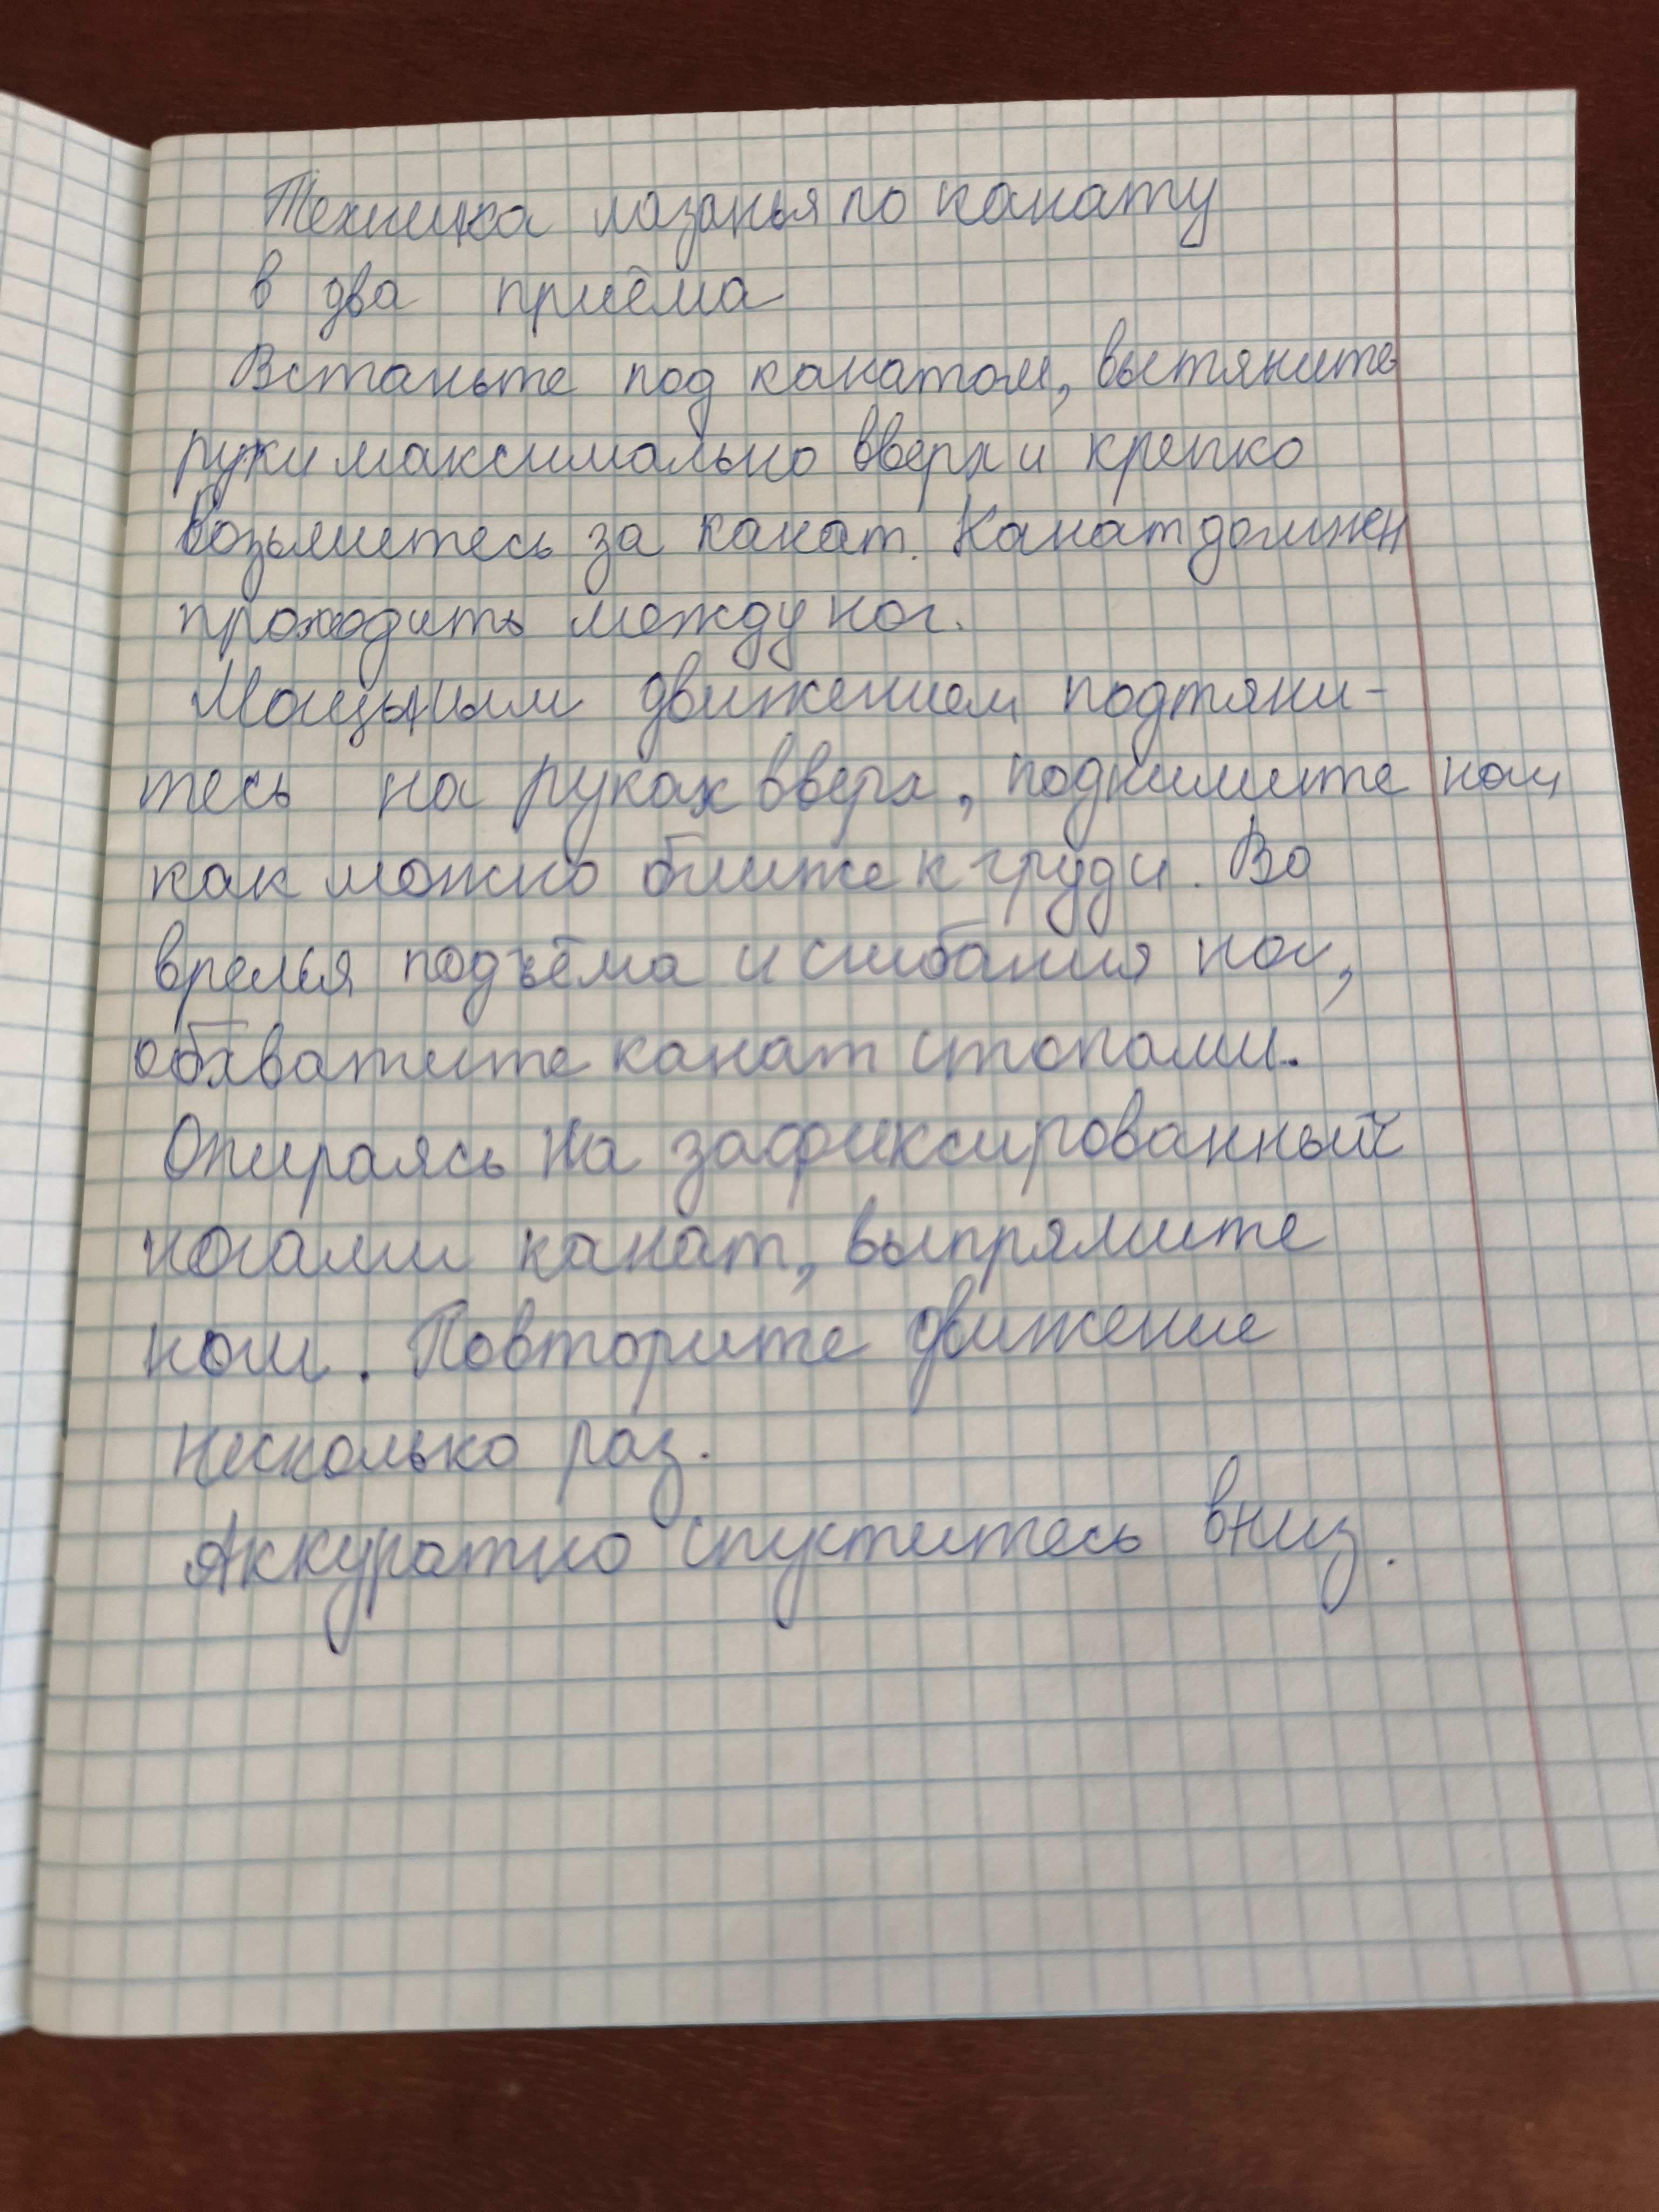 Техника лазанья по канату
в два приёма
Встаньте под канатом, вытяните
руки максимально вверх и крепко
возьмитесь за канат. Канат должен
проходить между ног.
Мощным движением подтяни-
тесь на руках вверх, поднимите ноги
как можно ближе к груди. Во
время подъёма и сгибания ног,
обхватите канат стопами.
Опираясь на зафиксированный
ногами канат, выпрямите
ноги. Повторите движение
несколько раз.
Аккуратно спуститесь вниз.